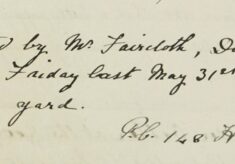 by Mr. Faircloth, D
Friday last May 31st
yard.
P.C. 148 H